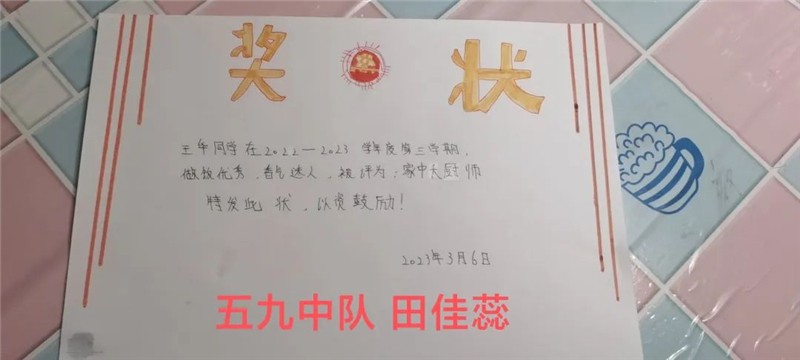 奖 状
王同学在2022—2023学年度第三学期,
做饭优秀,香气迷人,被评为:家中大厨师
特发此状,以资鼓励!
2023年3月6日
五九中队 田佳蕊